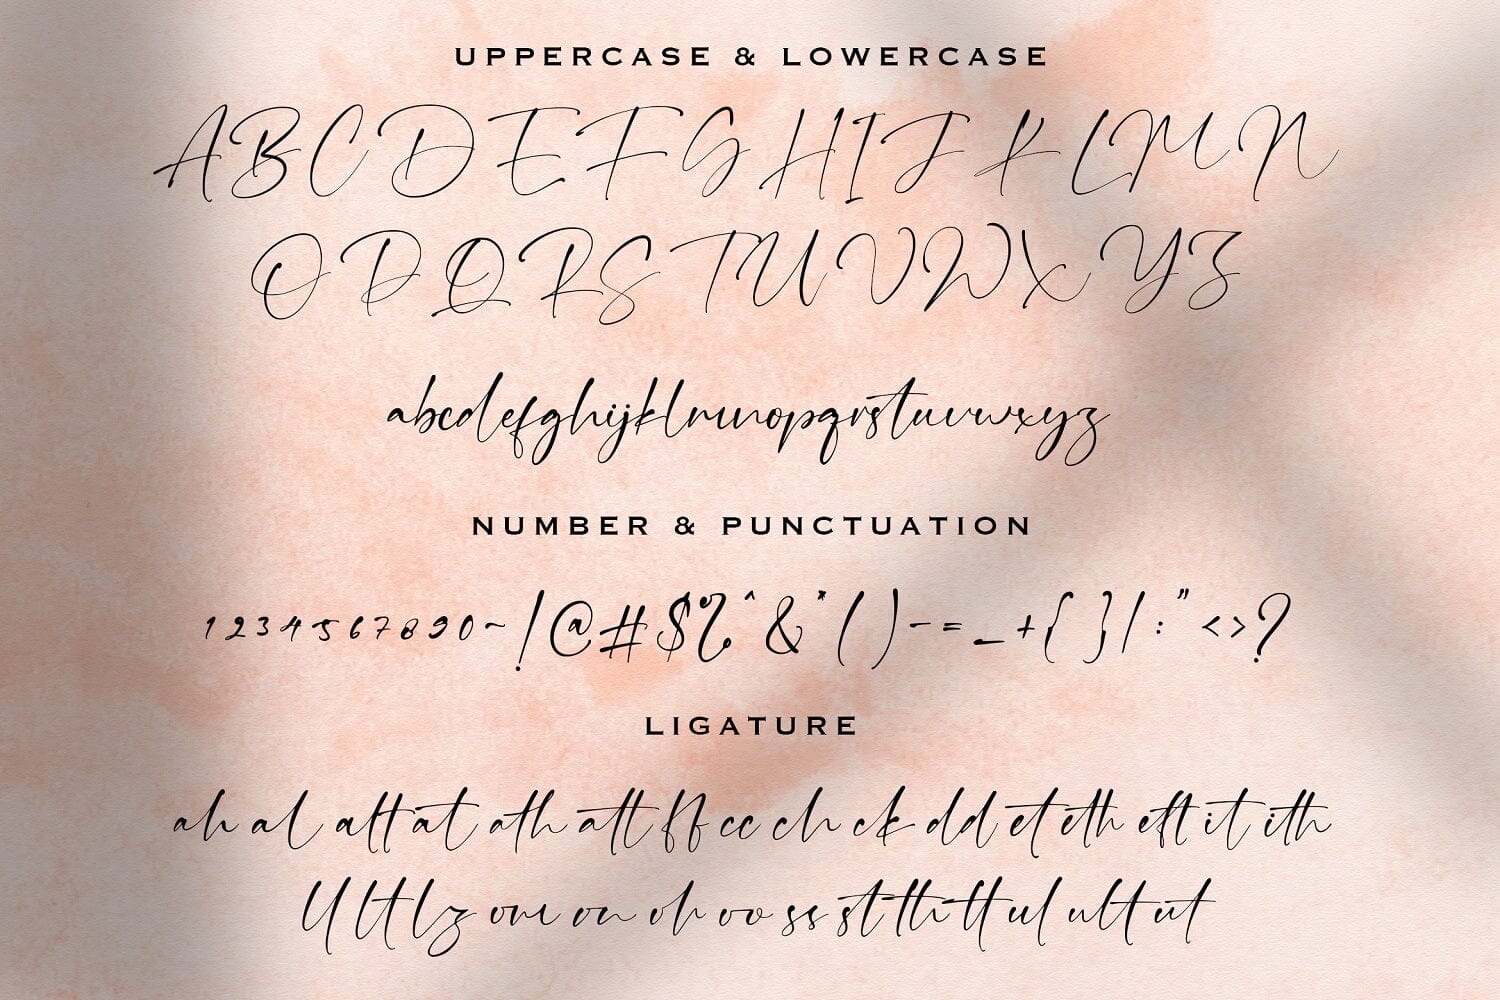 UPPERCASE & LOWERCASE
A B C D E F G H I J K L M N
O P Q R S T U V W X Y Z
abcdefghijklmnopqrstuvwxyz
NUMBER & PUNCTUATION
1 2 3 4 5 6 7 8 9 0 ~ ! @ # $ % ^ & * ( ) - = _ + { } | : " < > ?
LIGATURE
ah al alt at ath att ff cc ch ck dd et eth elt it ith
ll lt lz om on oh oo ss st th tt ul ult ut